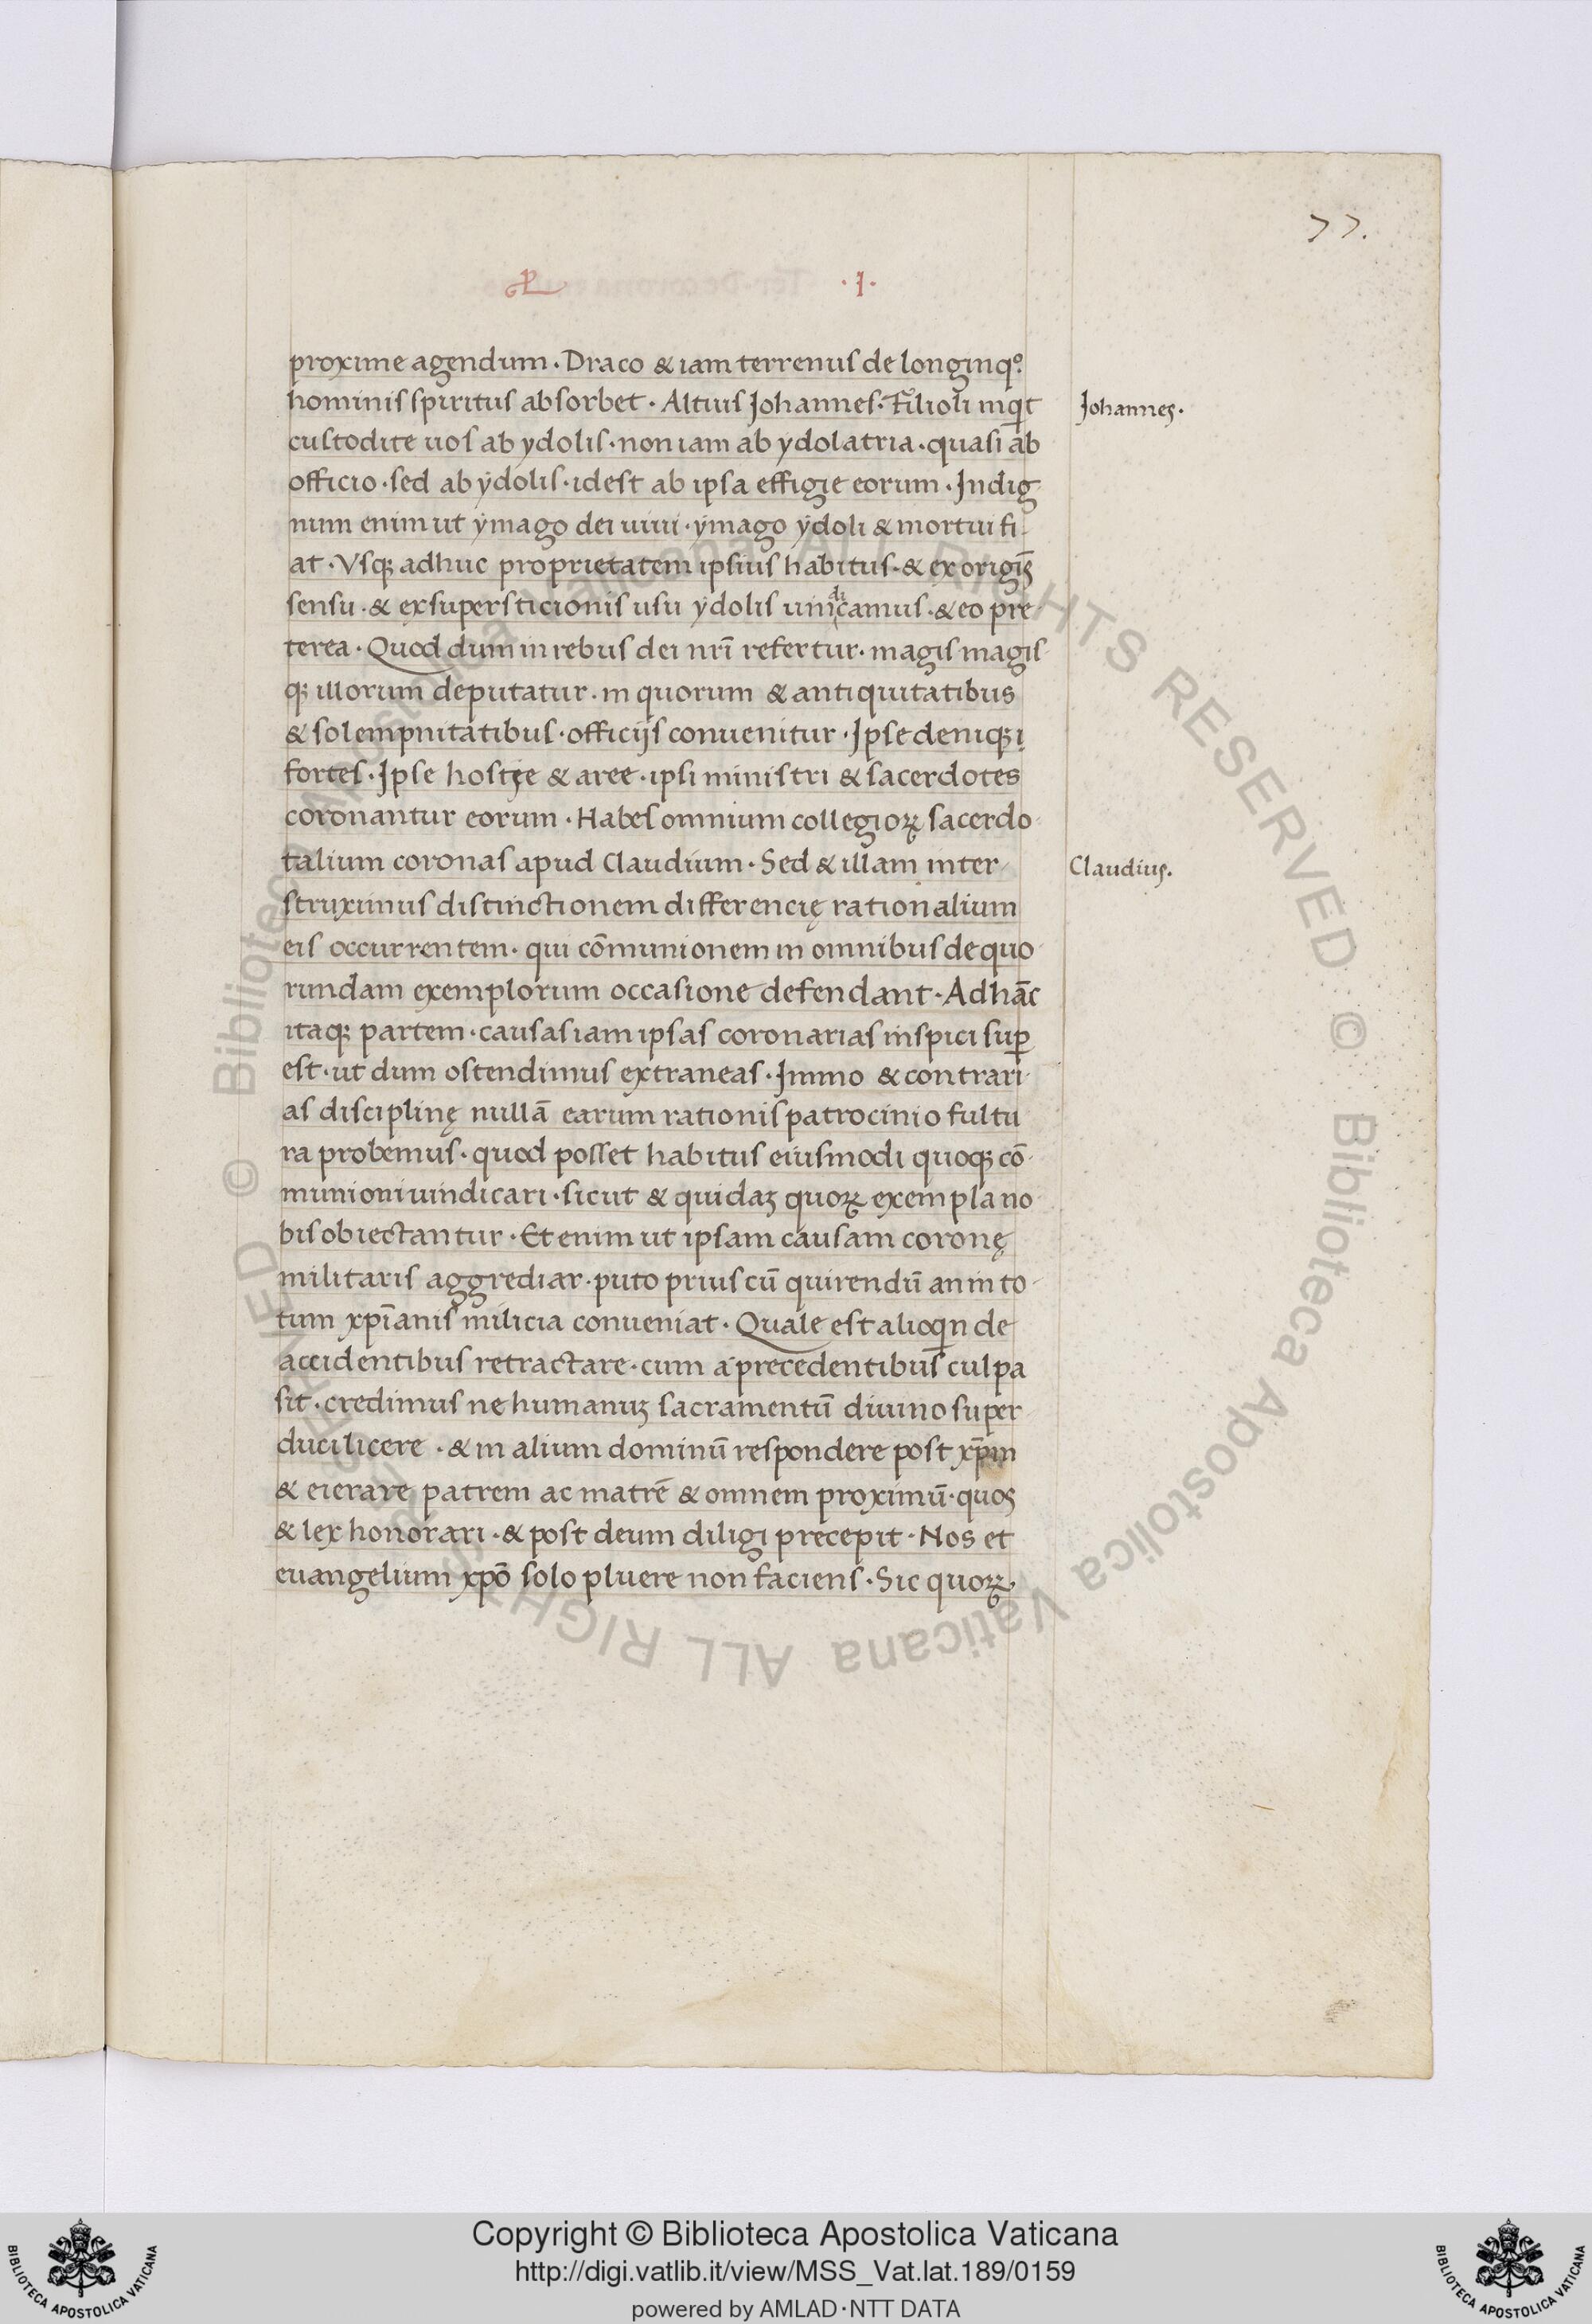 77.
·I·
proxime agendum · Draco & iam terrenus de longinqº
hominis spiritus absorbet · Altius Johannes · Filioli inqͥt
Johannes.
custodite uos ab ydolis · non iam ab ydolatria · quasi ab
officio · sed ab ydolis · idest ab ipsa effigie eorum · Indig
num enim ut ẏmago dei uiui · ẏmago ẏdoli & mortui fi-
at · Vsqꝫ adhuc proprietatem ipsius habitus · & ex origīs
sensu · & ex supersticionis usu ẏdolis uindicamus · & eo pre-
terea · Quod dum in rebus dei nr̄i refertur · magis magis
qꝫ illorum deputatur · in quorum & antiquitatibus
& solempnitatibus · officijs conuenitur · Ipse deniqꝫ i
fortes · Ipse hostie & aree · ipsi ministri & sacerdotes
coronantur eorum · Habes omnium collegioꝝ sacerdo-
talium coronas apud Claudium · Sed & illam inter-
Claudius.
struximus distinctionem differencię rationalium
eis occurrentem · qui cōmunionem in omnibus de quo-
rundam exemplorum occasione defendant · Ad hāc
itaqꝫ partem · causas iam ipsas coronarias inspici suꝑ
est · ut dum ostendimus extraneas · Immo & contrari-
as disciplinę nullā earum rationis patrocinio fultu
ra probemus · quod posset habitus eiusmodi quoqꝫ cō-
munioni uindicari · sicut & quidaꝫ quoꝝ exempla no-
bis obiectantur · Et enim ut ipsam causam coronę
militaris aggrediar · puto prius cū quirendū an in to-
tum xp̄ianis milicia conueniat · Quale est alioqͥn de
accidentibus retractare · cum a precedentibus culpa
sit · credimus ne humanuꝫ sacramentū diuino super
duci licere · & in alium dominū respondere post xp̄m
& eierare patrem ac matrē & omnem proximū · quos
& lex honorari · & post deum diligi precepit · Nos et
euangelium xp̄o solo pluere non faciens · Sic quoꝝ ·
© Biblioteca Apostolica Vaticana ALL RIGHTS RESERVED © Biblioteca Apostolica Vaticana ALL RIGHTS RESERVED
Copyright © Biblioteca Apostolica Vaticana
http://digi.vatlib.it/view/MSS_Vat.lat.189/0159
powered by AMLAD·NTT DATA
BIBLIOTECA APOSTOLICA VATICANA
BIBLIOTECA APOSTOLICA VATICANA